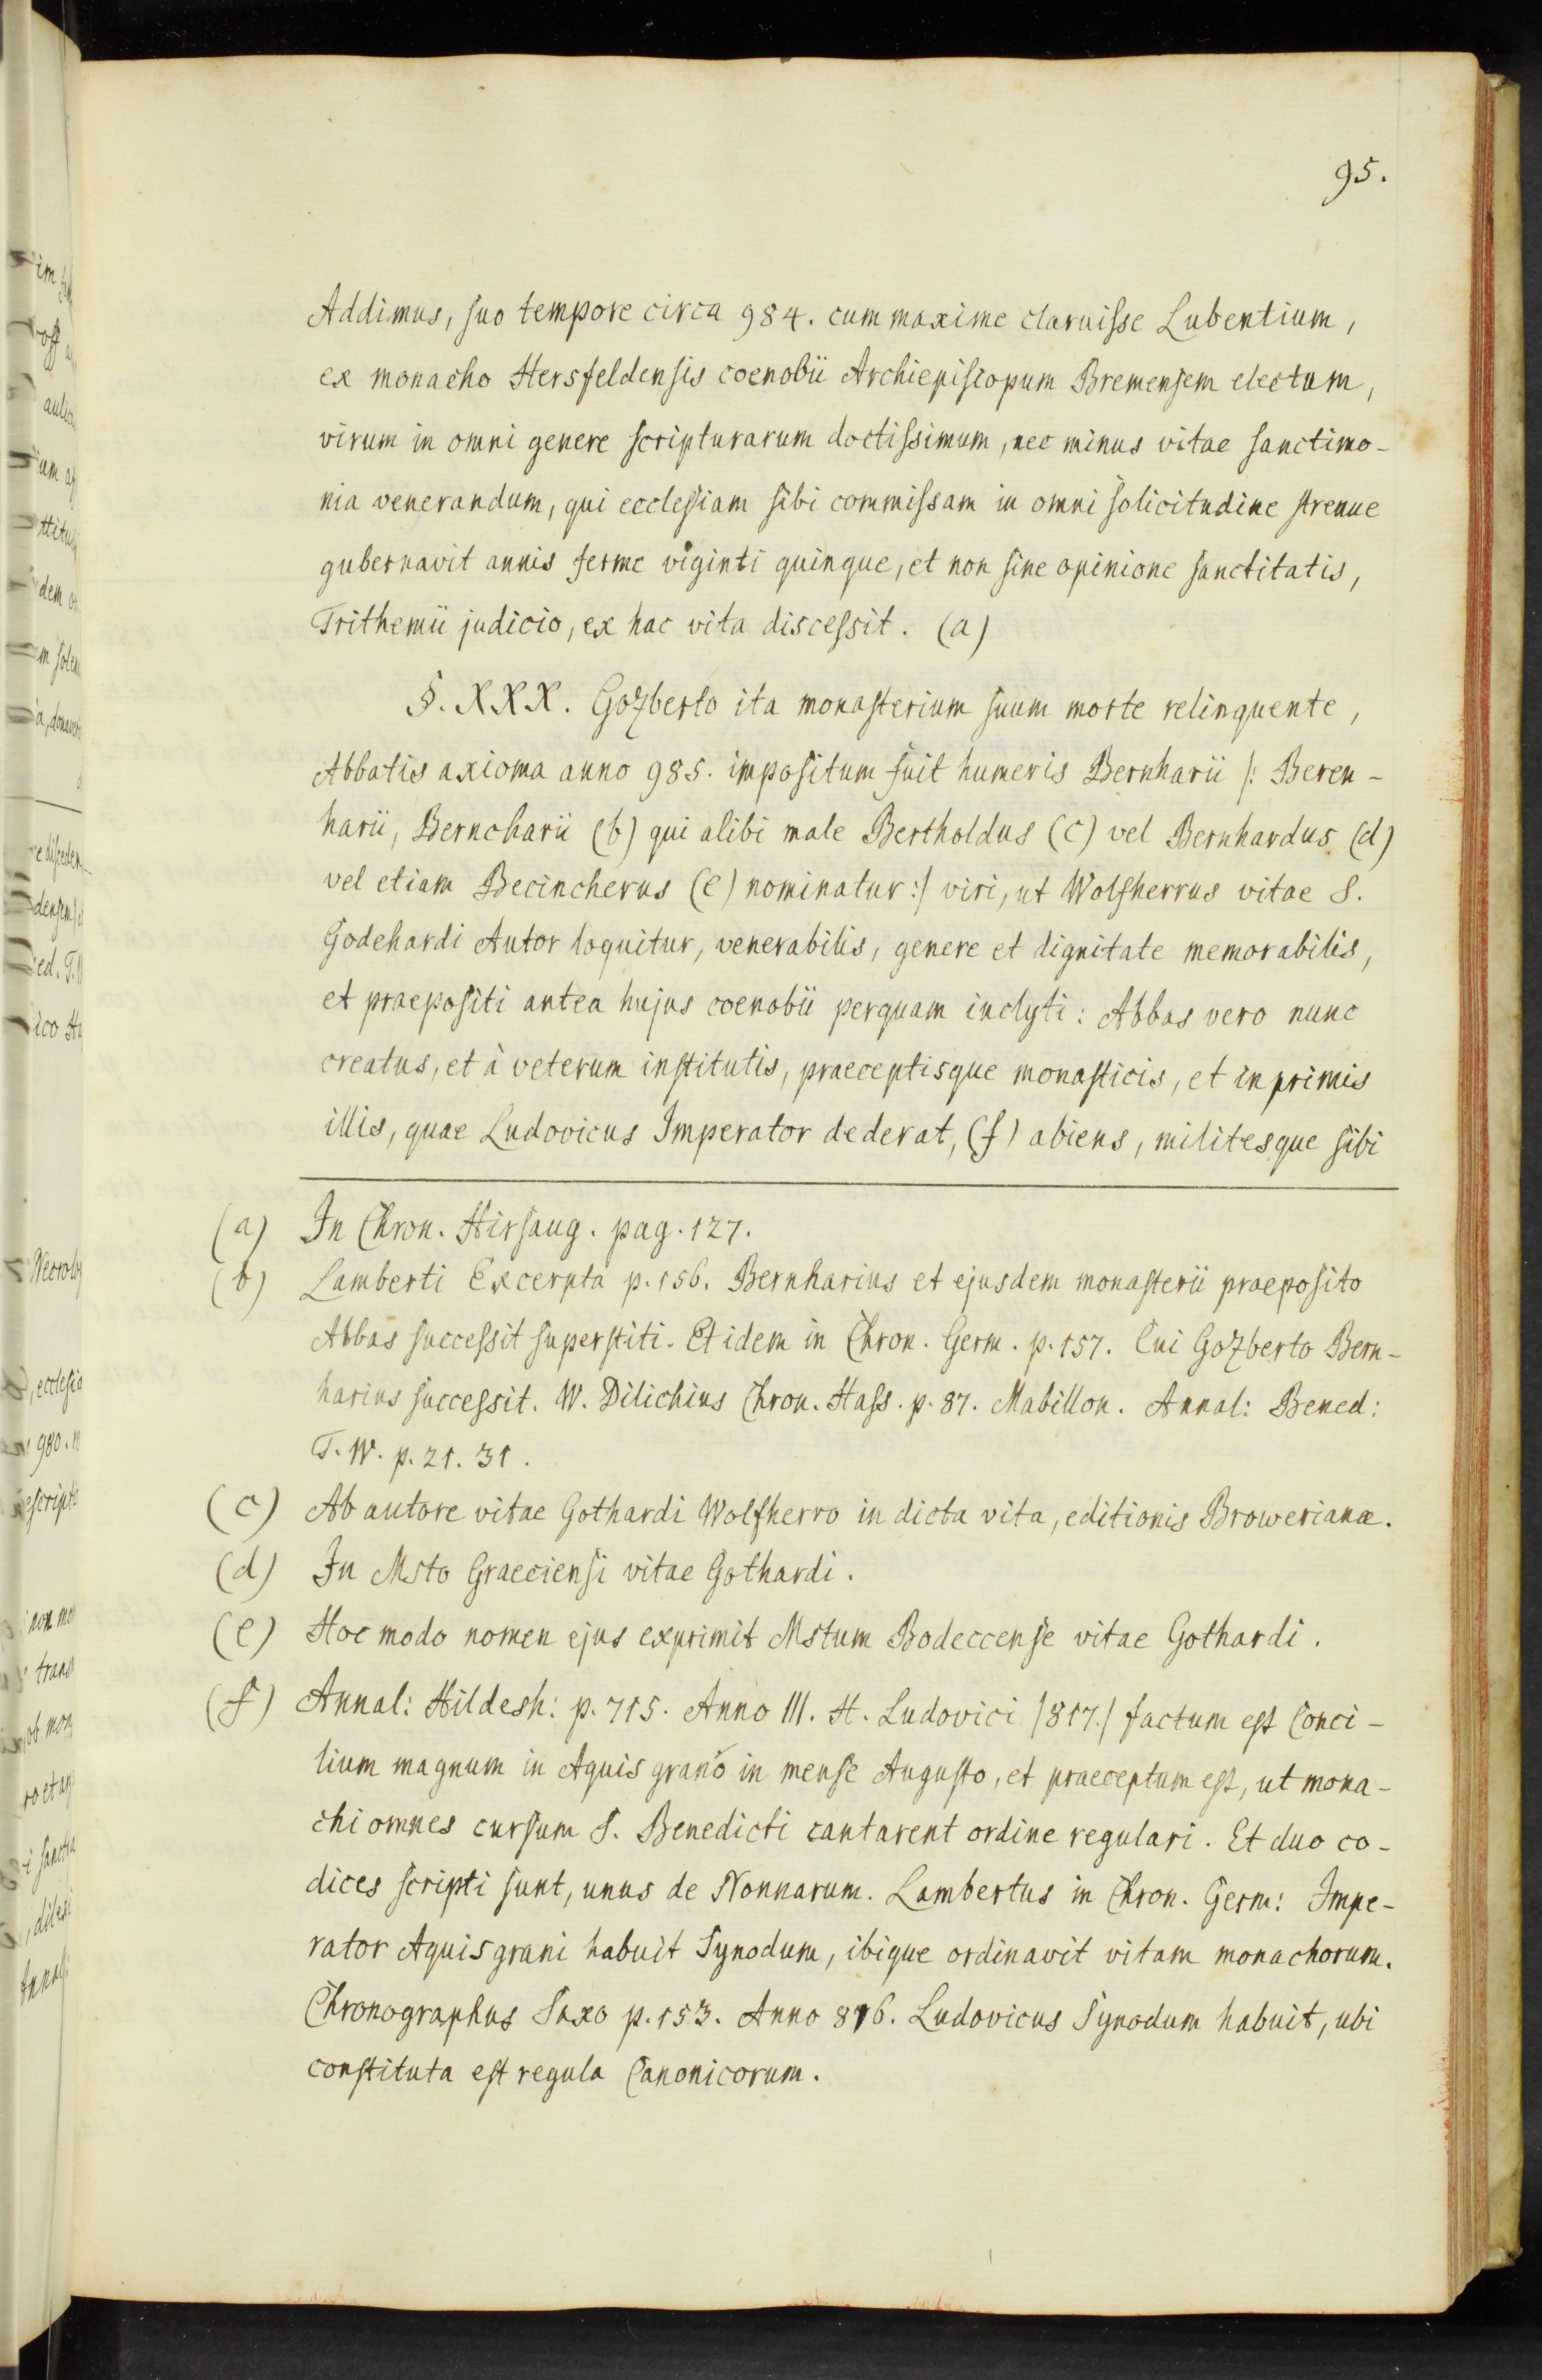 95.
Addimus, suo tempore circa 984. cum maxime claruisse Lubentium,
ex monacho Hersfeldensis coenobii Archiepiscopum Bremensem electum,
virum in omni genere scripturarum doctissimum, nec minus vitae sanctimo-
nia venerandum, qui ecclesiam sibi commissam in omni solicitudine strenue
gubernavit annis ferme viginti quinque, et non sine opinione sanctitatis,
Trithemii judicio, ex hac vita discessit. (a)
§. XXX. Gozberto ita monasterium suum morte relinquente,
Abbatis axioma anno 985. impositum fuit humeris Bernharii /: Beren-
harii, Berncharii (b) qui alibi male Bertholdus (c) vel Bernhardus (d)
vel etiam Becincherus (e) nominatur :/ viri, ut Wolfherrus vitae S.
Godehardi Autor loquitur, venerabilis, genere et dignitate memorabilis,
et praepositi antea hujus coenobii perquam inclyti: Abbas vero nunc
creatus, et à veterum institutis, praeceptisque monasticis, et inprimis
illis, quae Ludovicus Imperator dederat, (f) abiens, militesque sibi
(a) In Chron. Hirsaug. pag. 127.
(b) Lamberti Excerpta p. 156. Bernharius et ejusdem monasterii praeposito
Abbas successit superstiti. Et idem in Chron. Germ. p. 157. Cui Gozberto Bern-
harius successit. W. Dilichius Chron. Hass. p. 87. Mabillon. Annal: Bened:
T. IV. p. 21. 31.
(c) Ab autore vitae Gothardi Wolfherro in dicta vita, editionis Browerianæ.
(d) In Msto Graeciensi vitae Gothardi.
(e) Hoc modo nomen ejus exprimit Mstum Bodeccense vitae Gothardi.
(f) Annal: Hildesh: p. 715. Anno III. H. Ludovici /817./ factum est Conci-
lium magnum in Aquis grano in mense Augusto, et praeceptum est, ut mona-
chi omnes cursum S. Benedicti cantarent ordine regulari. Et duo co-
dices scripti sunt, unus de Nonnarum. Lambertus in Chron. Germ: Impe-
rator Aquisgrani habuit Synodum, ibique ordinavit vitam monachorum.
Chronographus Saxo p. 153. Anno 816. Ludovicus Synodum habuit, ubi
constituta est regula Canonicorum.